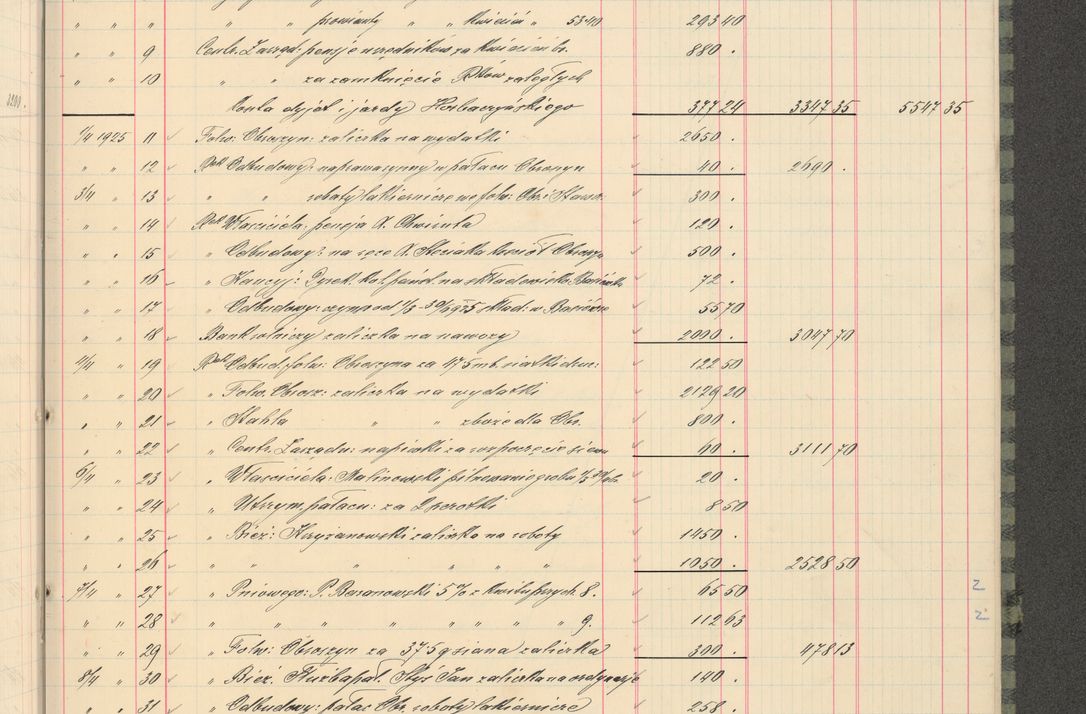 " " prowianty " " kwiecień " 53·40 293 40
" " 9 Centr. Zarząd: pensje urzędników za kwiecień br. 880 .
" " 10 " " za zamknięcie Rków zaległych
konta dyjet i jazdy Horbaczyńskiego 377 24 3347 35 5547 35
1/4 1925 11 Folw: Obroszyn: zaliczka na wydatki 2650 .
" " 12 Rek Odbudowy: naprawa rynny w pałacu Obroszyn 40 . 2690 .
3/4 " 13 " " roboty lakiernicze we folw: Obr: 300 .
" " 14 Rek Właściciela: pensja X. 120 .
" " 15 " Odbudowy: na ręce X. kościół Obroszyn 500 .
" " 16 " Kaucyj: Dyrek. kol. państ. na składowisko 72 .
" " 17 " Odbudowy: czynsz od 1/3 30/6 925 skład: w 55 70
" " 18 Bank rolniczy zaliczka na nawozy 2000 . 3047 70
4/4 " 19 Rek Odbud. folw: Obroszyna za 475 mb. siatki dru: 122 50
" " 20 " Folw. Obrosz: zaliczka na wydatki 2129 20
" " 21 " Stahla " " zboże dla Obr. 800 .
" " 22 " Centr. Zarządu: napiwki za rozpoczęcie 60 . 3111 70
6/4 " 23 " Właściciela: Malinowski pilnowanie grobu 20 .
" " 24 " Utrzym. pałacu: za 2 szczotki 8 50
" " 25 " Bież: Krzyżanowski zaliczka na roboty 1450 .
" " 26 " " " " " " 1050 . 2528 50
7/4 " 27 " Pniowego: P. Baranowski 5% z kwitu 8. 65 50
" " 28 " " " " " " " " 9. 112 63
" " 29 " Folw: Obroszyn za 375 q siana zaliczka 300 . 478 13
8/4 " 30 " Bież. Jan zaliczka na 140 .
" " 31 " Odbudowy: pałac Obr. roboty lakiernicze 258 .
3200.
2
2